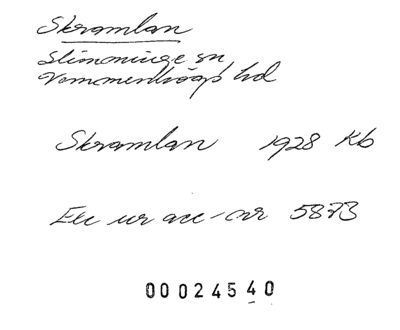 Skramlan
Slimminge sn
Vemmenhögs hd
Skramlan 1928 Kb
Exc ur acc-nr 5873
00024540